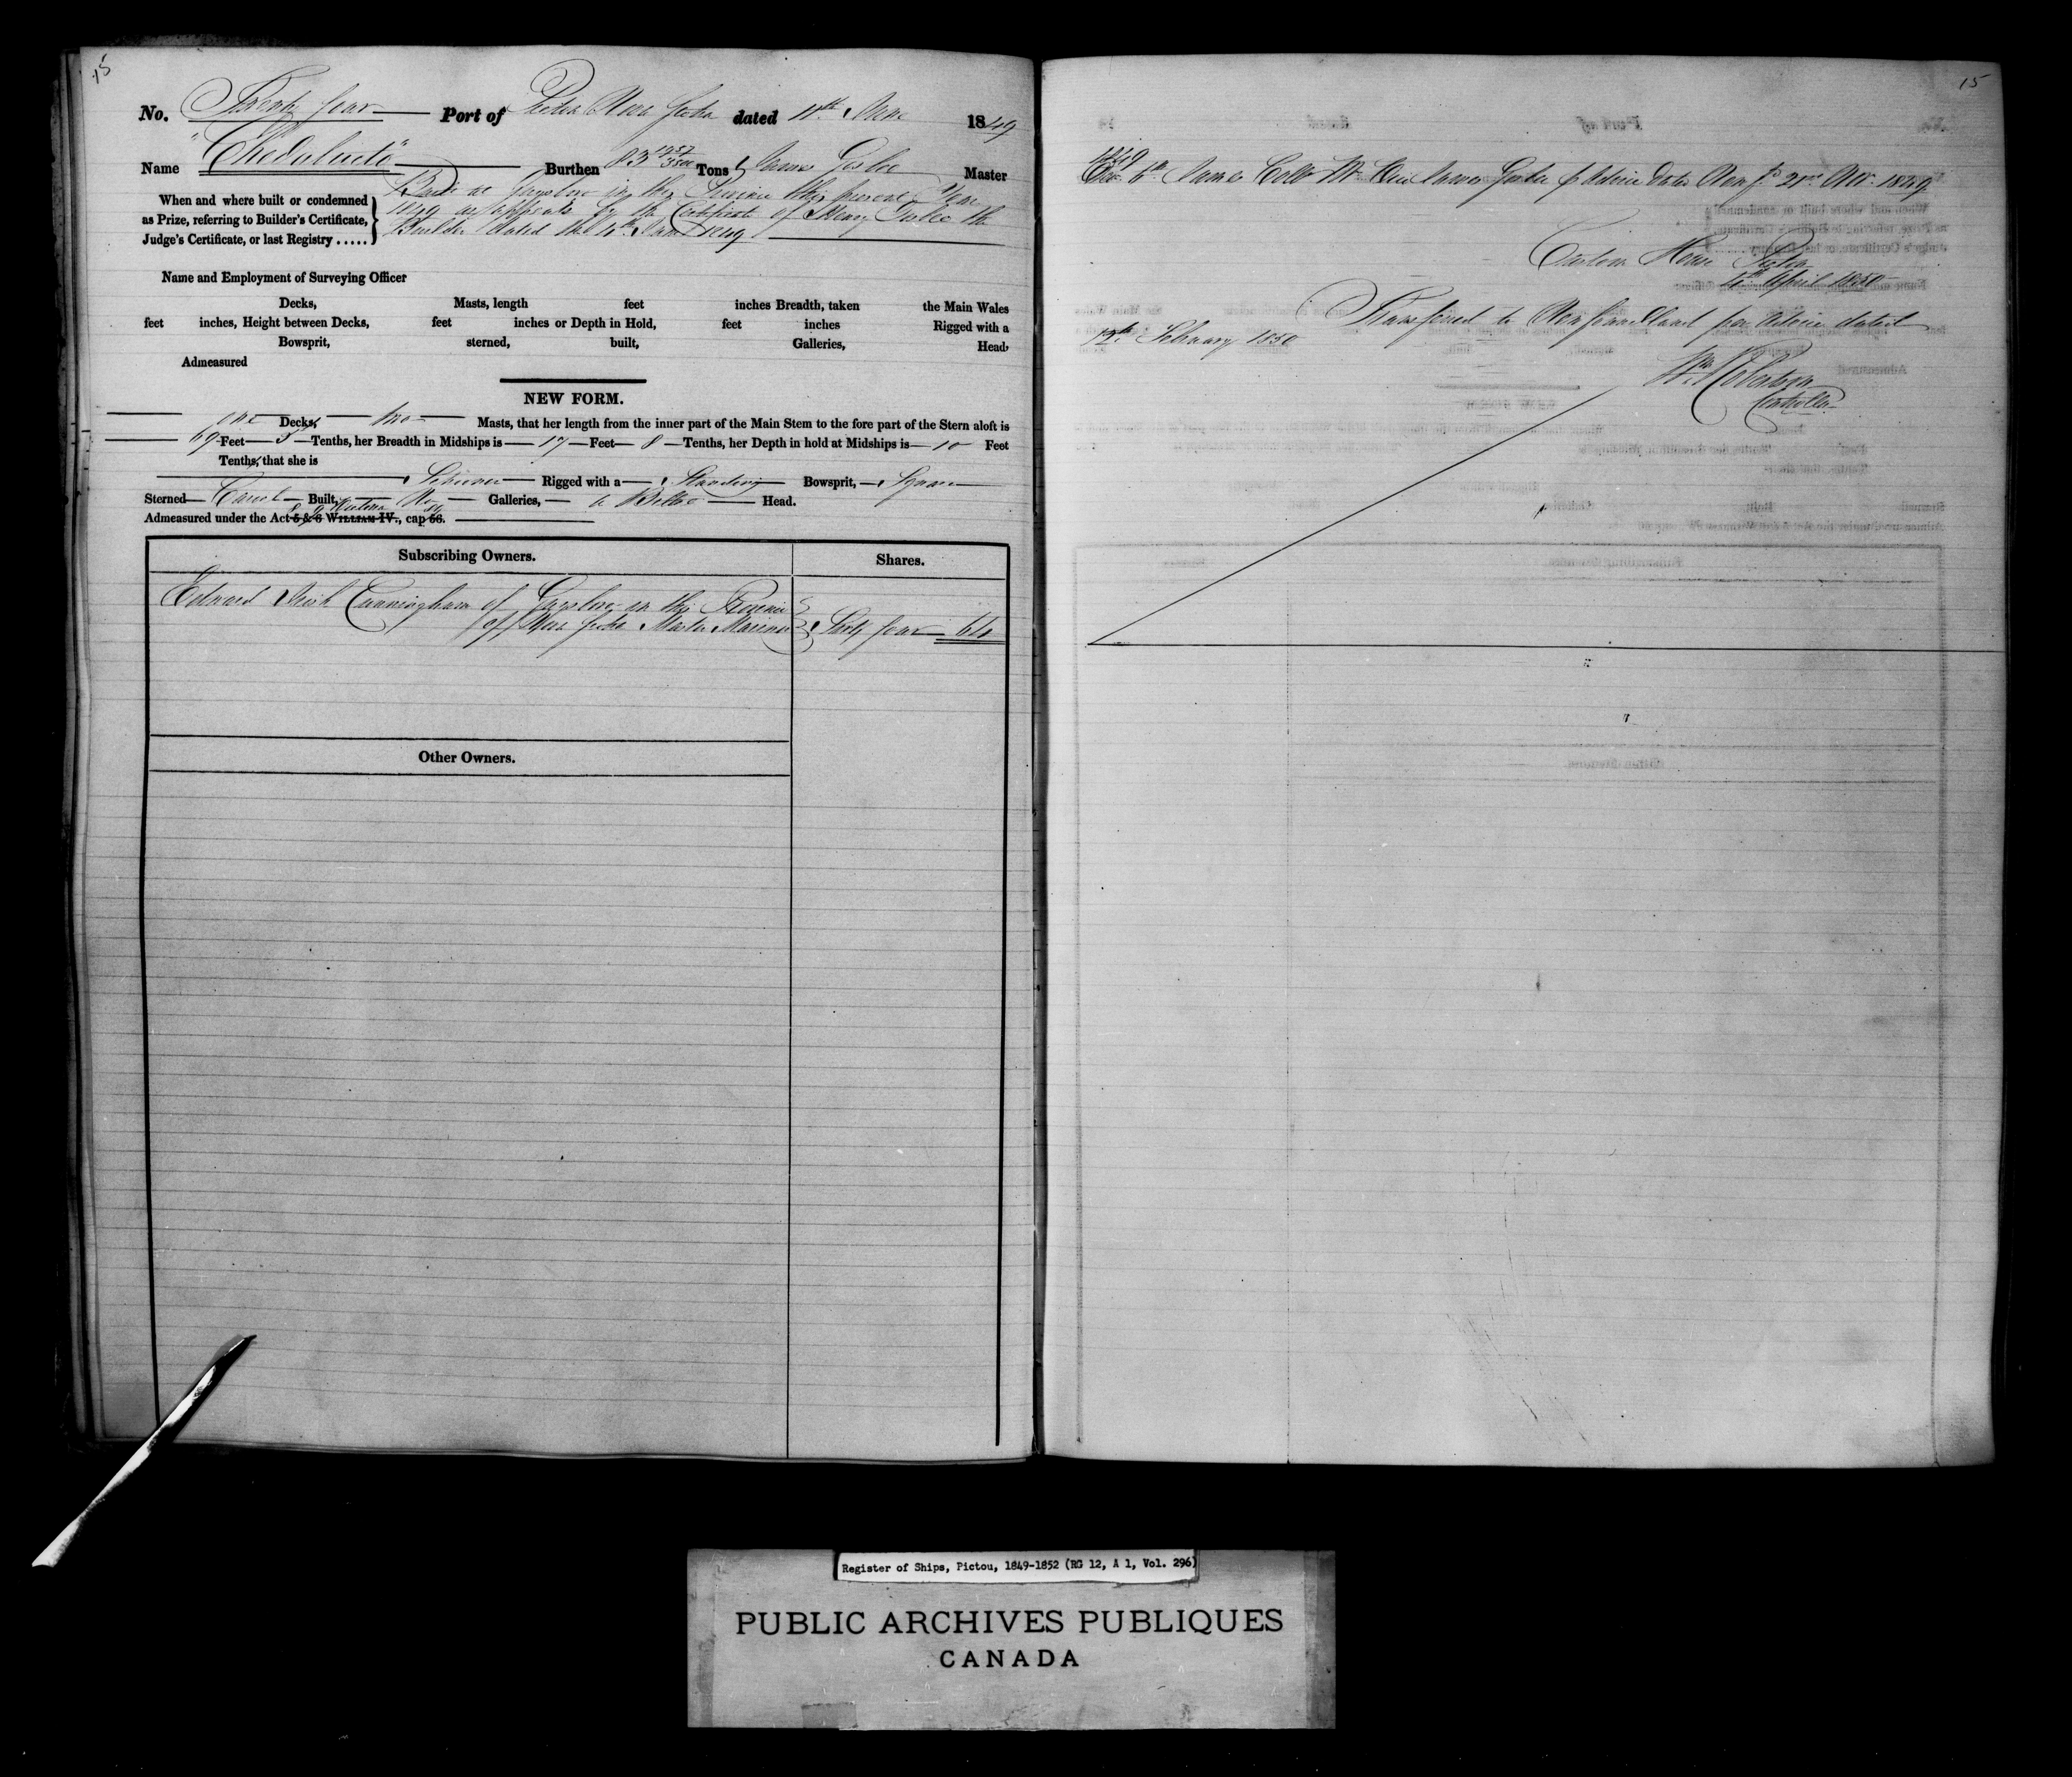 15
No. Twenty four Port of Pictou Nova Scotia dated 11th June 1849
Name "Chedabucto" Burthen 83 1257/3500 Tons, James Master
When and where built or condemned as Prize, referring to Builder's Certificate, Judge's Certificate, or last Registry .....
Built at Guysboro in this Province this present Year
1849 as appears by the Certificate of Henry the
Builder dated the 4th June 1849
Name and Employment of Surveying Officer
Decks, Masts, length feet inches Breadth, taken the Main Wales
feet inches, Height between Decks, feet inches or Depth in Hold, feet inches Rigged with a
Bowsprit, sterned, built, Galleries, Head,
Admeasured
NEW FORM.
one Decks, two Masts, that her length from the inner part of the Main Stem to the fore part of the Stern aloft is
69 Feet 5 Tenths, her Breadth in Midships is 17 Feet 8 Tenths, her Depth in hold at Midships is 10 Feet
Tenths, that she is
Schooner Rigged with a Standing Bowsprit, Square
Sterned Carvel Built, No Galleries, a Billet Head.
8 & 9 Victoria 89
Admeasured under the Act 5 & 6 WILLIAM IV., cap 56.
Subscribing Owners. Shares.
Edward Irish Cunningham of Guysboro in the Province
of Nova Scotia Master Mariner Sixty four 64
Other Owners.
15
1849
Dec. 6th James Master dated 21st Nov. 1849
Custom House Pictou
April 1850
Transferred to Newfoundland per Advice dated
February 1850
Wm Robertson
Controller
Register of Ships, Pictou, 1849-1852 (RG 12, A 1, Vol. 296)
PUBLIC ARCHIVES PUBLIQUES
CANADA